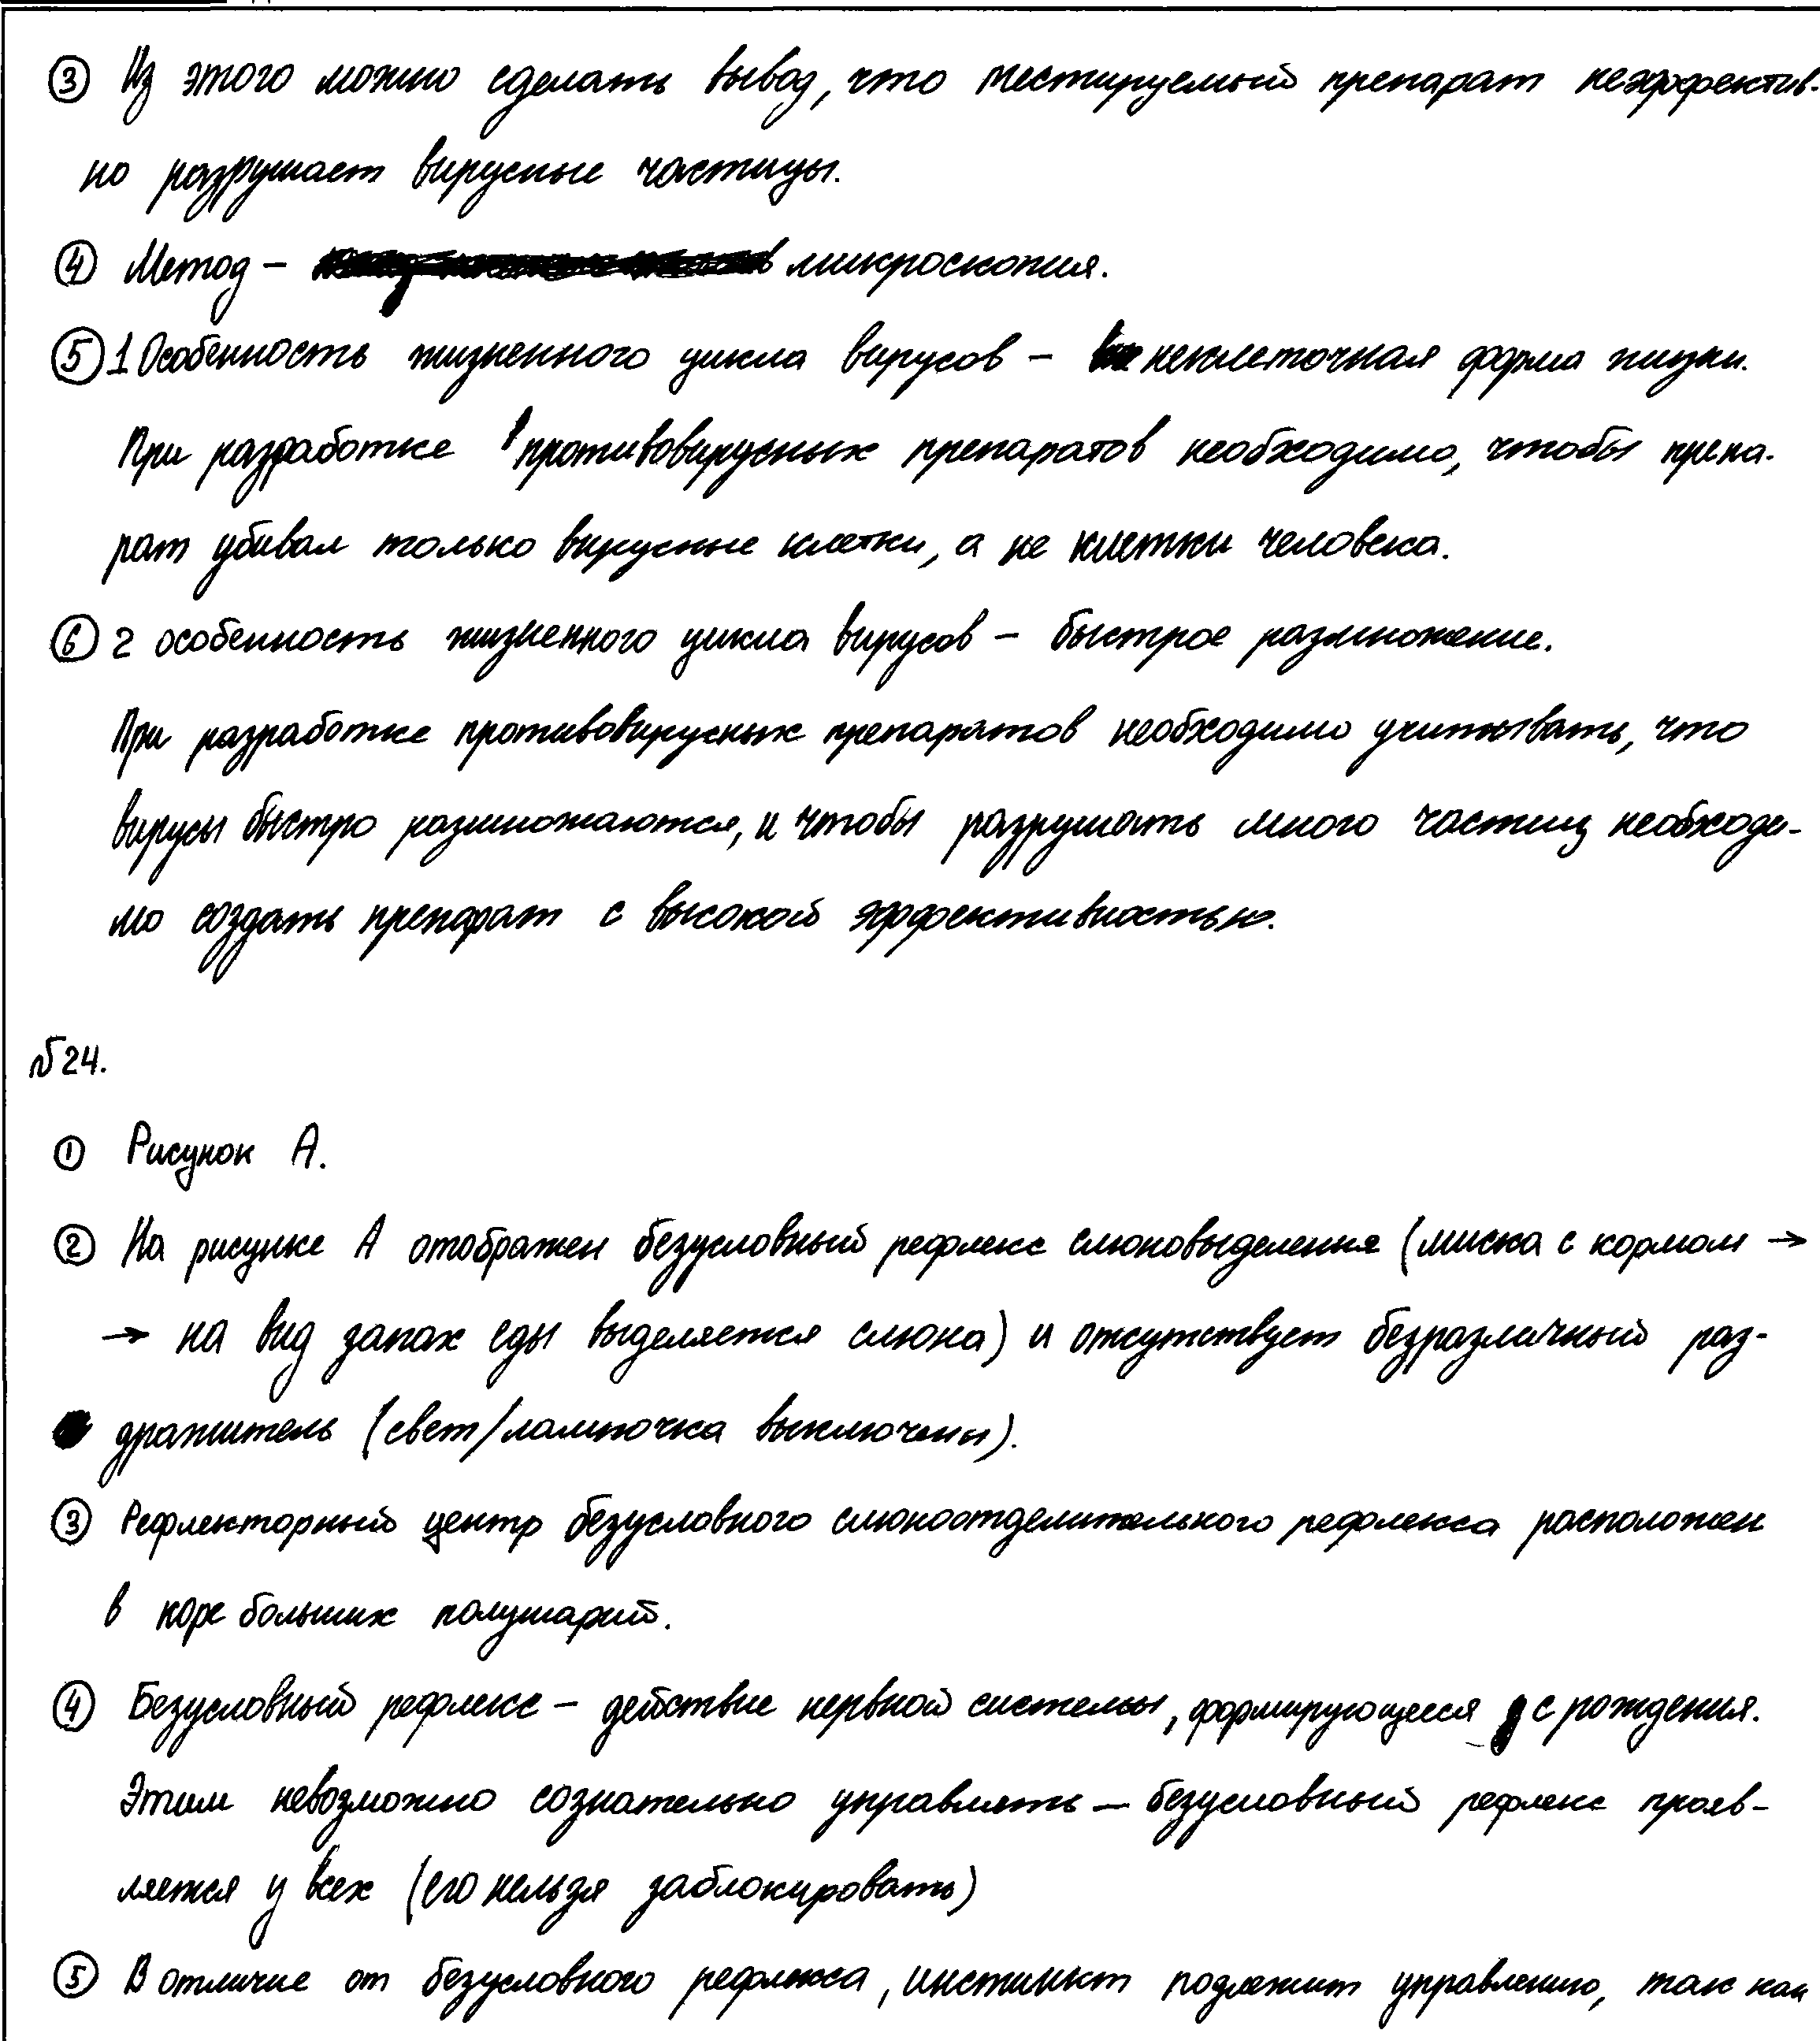 ③ Из этого можно сделать вывод, что тестируемый препарат неэффектив-
но разрушает вирусные частицы.
④ Метод – микроскопия.
⑤ 1 Особенность жизненного цикла вирусов – неклеточная форма жизни.
При разработке противовирусных препаратов необходимо, чтобы препа-
рат убивал только вирусные клетки, а не клетки человека.
⑥ 2 особенность жизненного цикла вирусов – быстрое размножение.
При разработке противовирусных препаратов необходимо учитывать, что
вирусы быстро размножаются, и чтобы разрушать много частиц необходи-
мо создать препарат с высокой эффективностью.
№24.
① Рисунок А.
② На рисунке А отображен безусловный рефлекс слюновыделения (миска с кормом →
→ на вид запах еды выделяется слюна) и отсутствует безразличный раз-
дражитель (свет/лампочка выключены).
③ Рефлекторный центр безусловного слюноотделительного рефлекса расположен
в коре больших полушарий.
④ Безусловный рефлекс – действие нервной системы, формирующееся с рождения.
Этим невозможно сознательно управлять – безусловный рефлекс прояв-
ляется у всех (его нельзя заблокировать)
⑤ В отличие от безусловного рефлекса, инстинкт подлежит управлению, так как